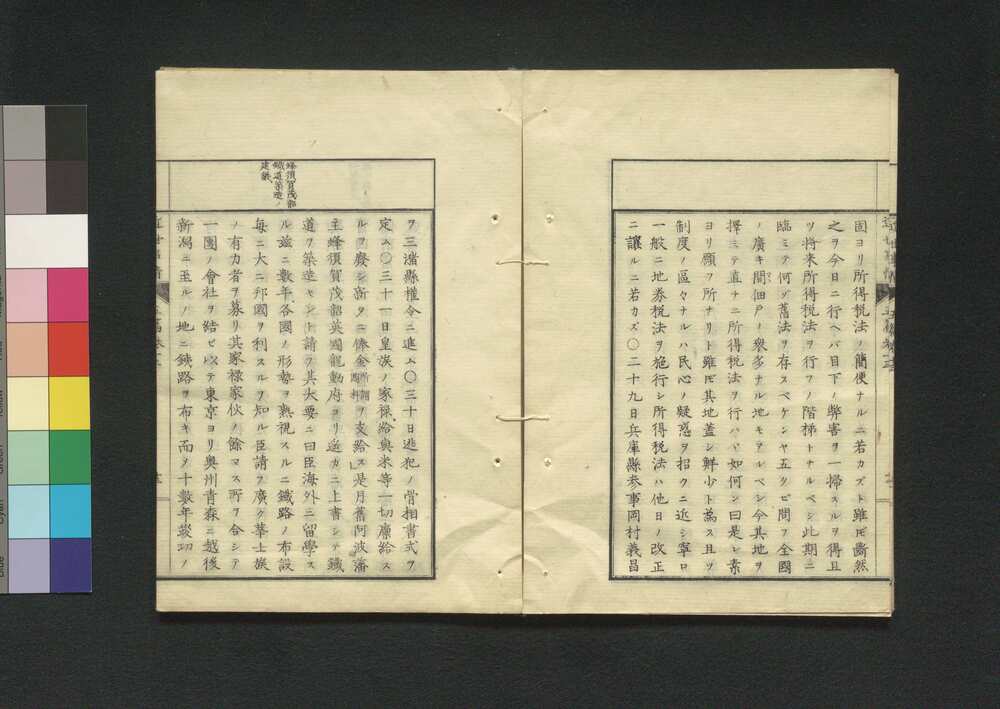 固ヨリ所得税法ノ簡便ナルニ若カズト雖𪜈斷然
之ヲ今日ニ行ヘバ目下ノ弊害ヲ一掃スルヲ得且
ツ将来所得税法ヲ行フノ階梯トナルベシ此期ニ
臨ミテ何ゾ舊法ヲ存スベケンヤ五タビ問フ全國
ノ廣キ間田戸ノ衆多ナル地モアルベシ今其地ヲ
擇ミテ直チニ所得税法ヲ行ハヾ如何ン曰是レ素
ヨリ願フ所ナリト雖𪜈其地蓋シ鮮少ト為ス且ツ
制度ノ區々ナルハ民心ノ疑惑ヲ招クニ近シ寧ロ
一般ニ地券税法ヲ施行シ所得税法ハ他日ノ改正
ニ讓ルニ若カズ〇二十九日兵庫縣参事岡村義昌
ヲ三潴縣權令ニ進ム〇三十日逃犯ノ骨相書式ヲ
定ム〇三十一日皇族ノ家禄給與米等一切廩給ス
ルヲ廢シ新タニ俸金ヲ支給ス是月舊阿波藩
主蜂須賀茂韶英國龍動府ヨリ遥カニ上書シテ鐵
道ヲ築造センヿヲ請フ其大要ニ曰臣海外ニ留學ス
ル玆ニ數年各國ノ形勢ヲ熟視スルニ鐵路ノ布設
毎ニ大ニ邦國ヲ利スルヲ知ル臣請フ廣ク華士族
ノ有力者ヲ募リ其家禄家伙ノ餘マス所ヲ合シテ
一團ノ會社ヲ結ビ以テ東京ヨリ奥州青森ニ越後
新潟ニ至ルノ地ニ鉄路ヲ布キ而ヲ十數年竣功ノ
蜂須賀茂韶
鐵道築造ノ
建議